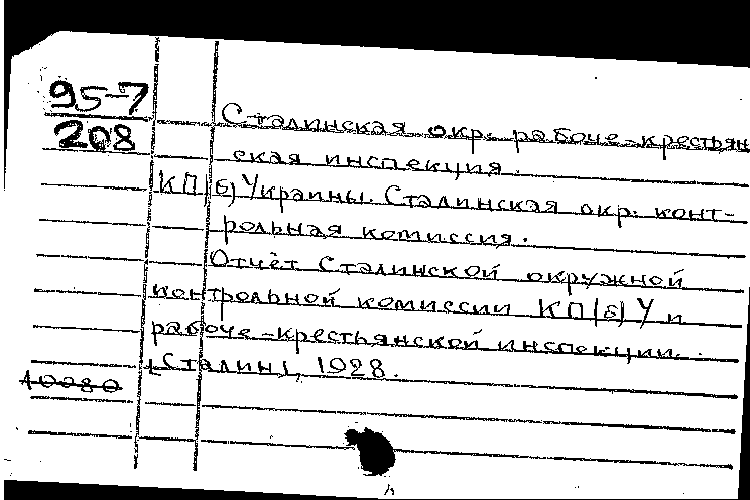 95-7
208
Сталинская окр. рабоче-крестьян
ская инспекция.
КП(б) Украины. Сталинская окр. конт-
рольная комиссия.
Отчёт Сталинской окружной
контрольной комиссии КП(б)У и
рабоче-крестьянской инспекции.
[Сталин], 1928.
10080